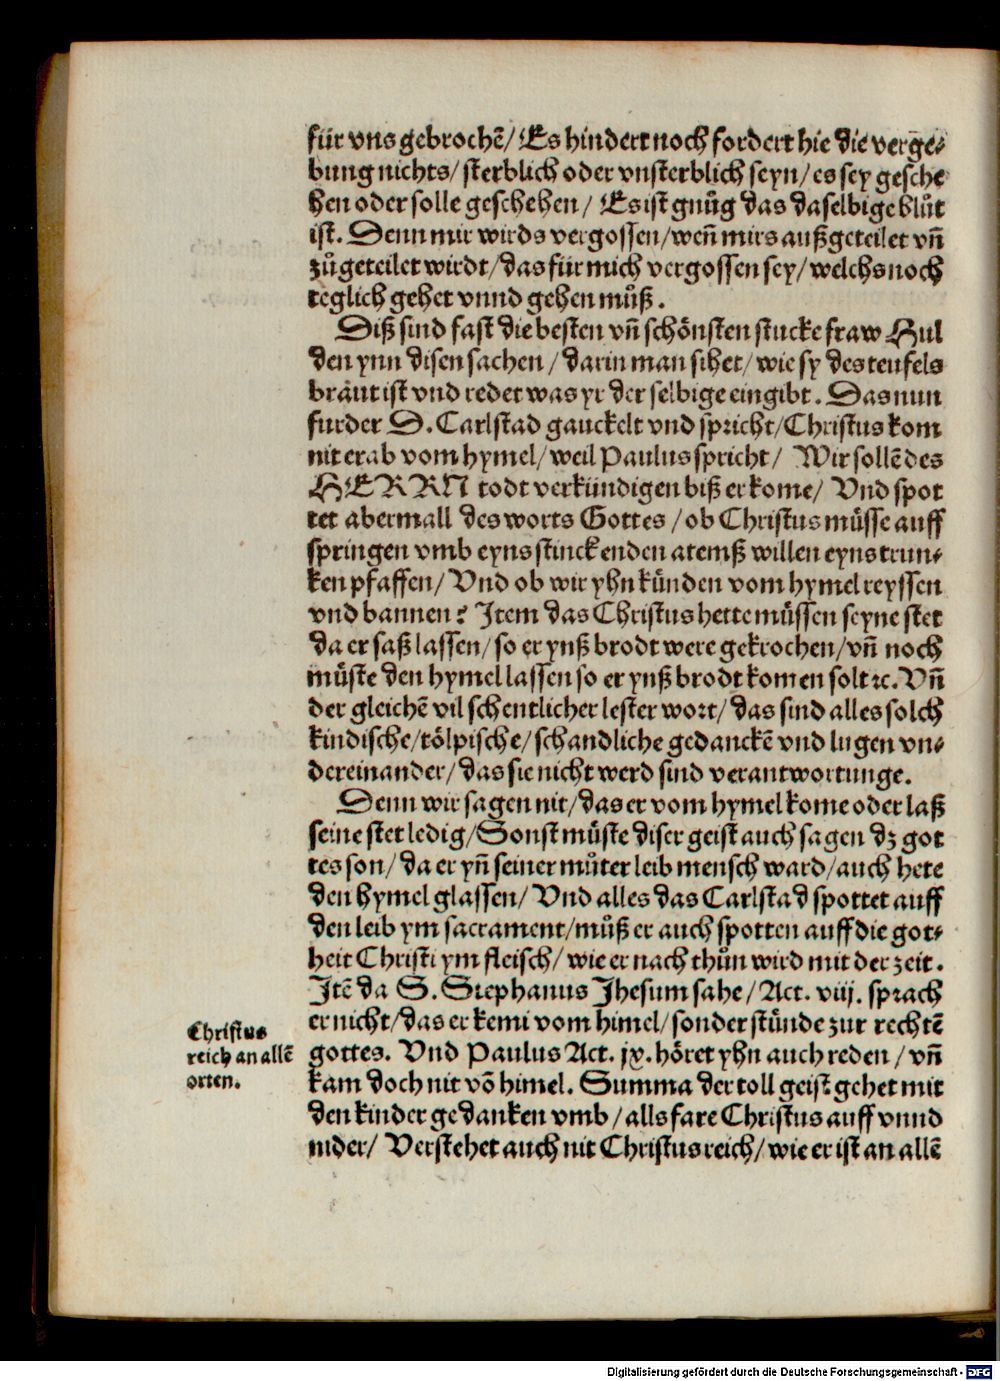 für vns gebrochẽ/ Es hindert noch fordert hie die verge⸗
bung nichts/ sterblich oder vnsterblich seyn/ es sey gesche
hen oder solle geschehen/ Es ist gnůg das daselbige blůt
ist. Denn mir wirds vergossen/ wen̄ mirs außgeteilet vn̄
zůgeteilet wirdt/ das für mich vergossen sey/ welchs noch
teglich gehet vnnd gehen můß.
Diß sind fast die besten vn̄ schönsten stucke fraw Hul
den ynn disen sachen/ darin man sihet/ wie sy des teufels
bräut ist vnd redet was yr der selbige eingibt. Das nun
furder D. Carlstad gauckelt vnd spricht/ Christus kom
nit erab vom hymel/ weil Paulus spricht/ Wir sollẽ des
HERRN todt verkündigen biß er kome/ Vnd spot
tet abermall des worts Gottes/ ob Christus müsse auff
springen vmb eyns stinckenden atemß willen eyns trun⸗
ken pfaffen/ Vnd ob wir yhn künden vom hymel reyssen
vnd bannen? Item das Christus hette müssen seyne stet
da er saß lassen/ so er ynß brodt were gekrochen/ vn̄ noch
müste den hymel lassen so er ynß brodt komen solt ⁊c. Vn̄
der gleichẽ vil schentlicher lester wort/ das sind alles solch
kindische/ tölpische/ schandliche gedanckẽ vnd lugen vn⸗
dereinander/ das sie nicht werd sind verantwortunge.
Denn wir sagen nit/ das er vom hymel kome oder laß
seine stet ledig/ Sonst müste diser geist auch sagen dz got
tes son/ da er yn̄ seiner můter leib mensch ward/ auch hete
den hymel glassen/ Vnd alles das Carlstad spottet auff
den leib ym sacrament/ můß er auch spotten auff die got⸗
heit Christi ym fleisch/ wie er nach thůn wird mit der zeit.
Itẽ da S. Stephanus Jhesum sahe/ Act. viij. sprach
er nicht/ das er kemi vom himel/ sonder stünde zur rechtẽ
gottes. Vnd Paulus Act. jx. höret yhn auch reden/ vn̄
kam doch nit võ himel. Summa der toll geist gehet mit
den kinder gedanken vmb/ alls fare Christus auff vnnd
nider/ Verstehet auch nit Christus reich/ wie er ist an allẽ
Christus
reich an allẽ
orten.
Digitalisierung gefördert durch die Deutsche Forschungsgemeinschaft - DFG